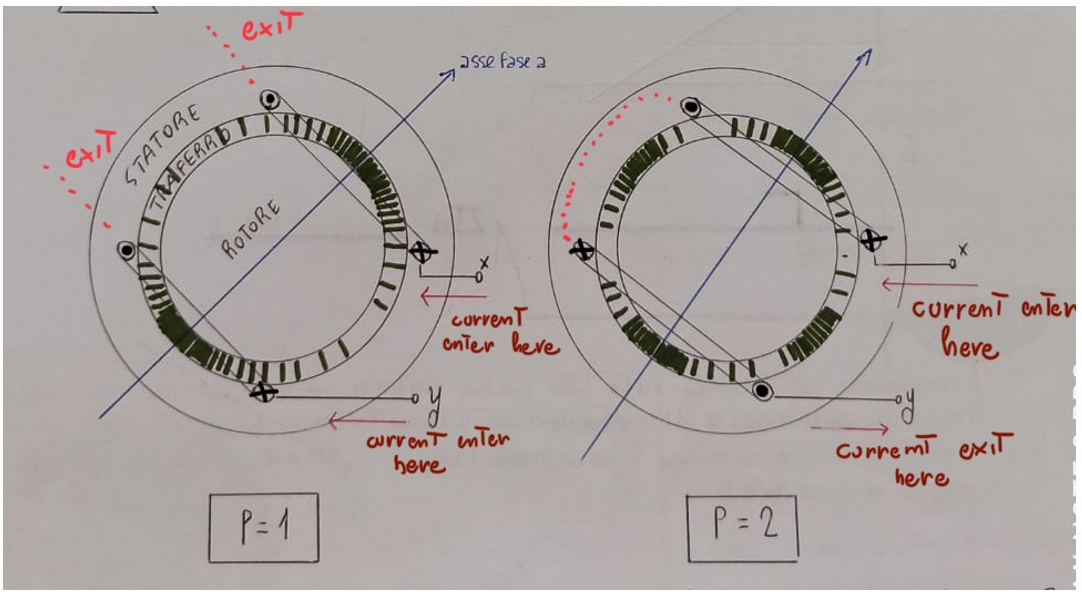 exit
asse fase a
exit
STATORE
TRAFERRO
ROTORE
x
current
enter here
y
current enter
here
P=1
x
current enter
here
y
current exit
here
P=2